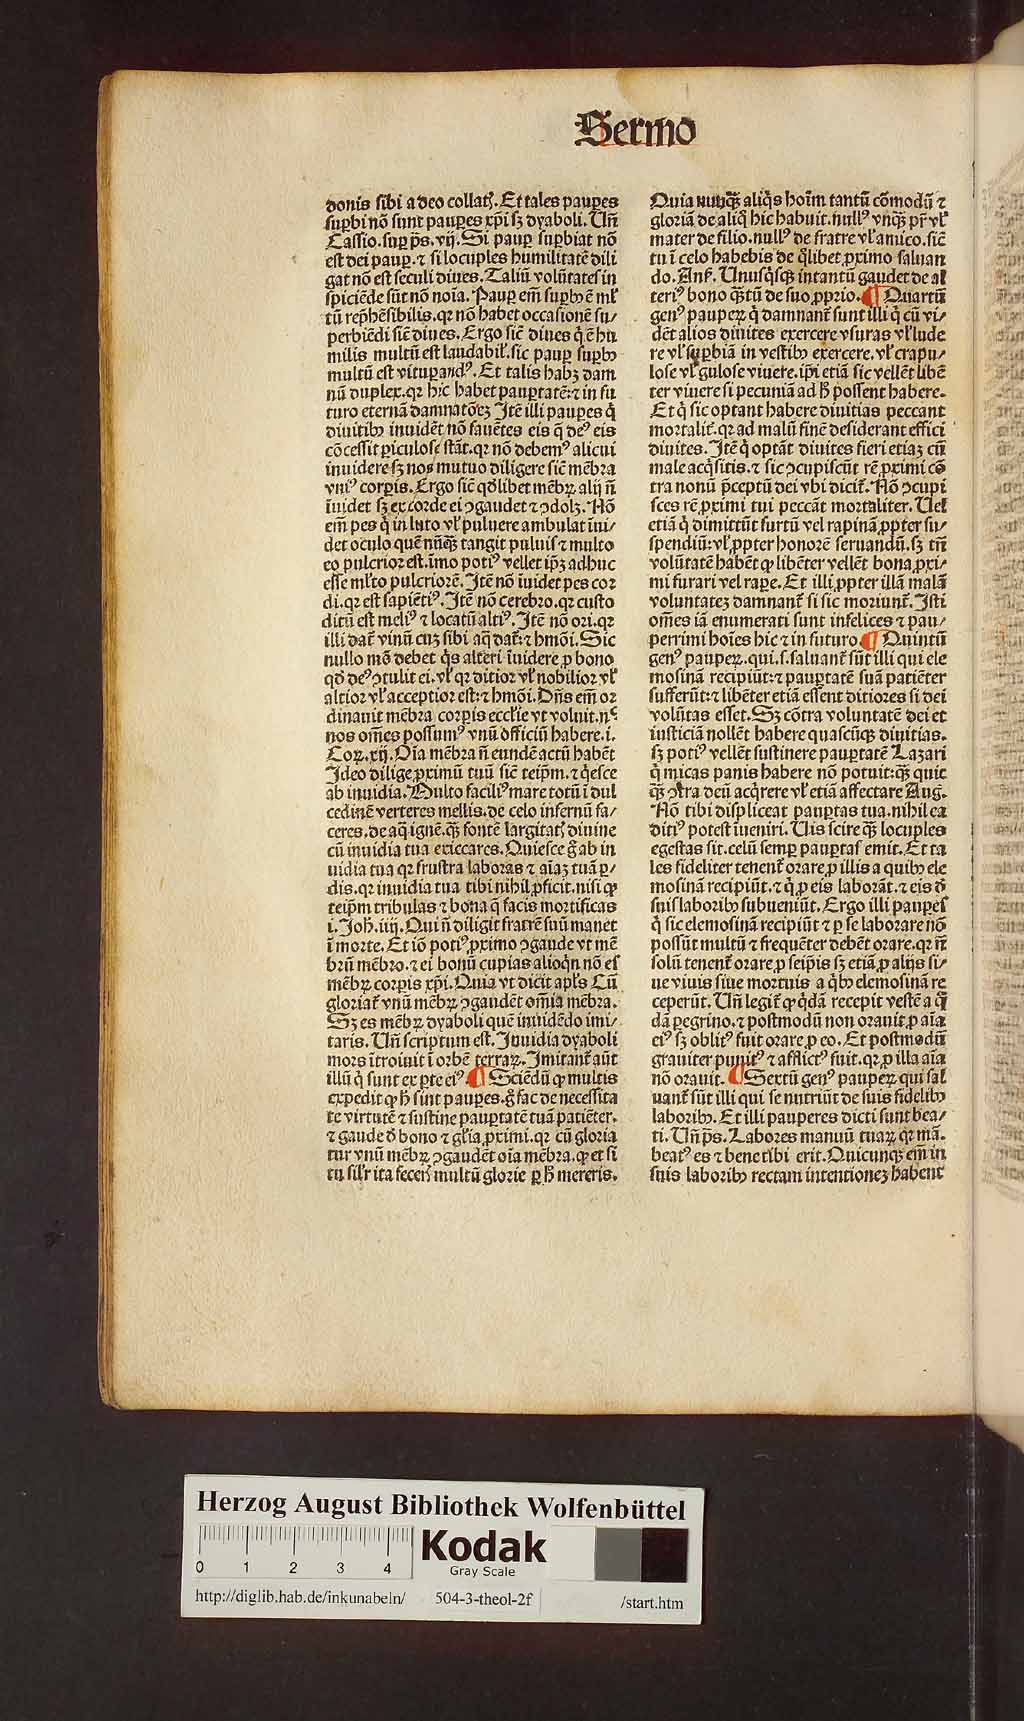 Sermo
donis sibi a deo collatꝭ. Et tales paupes
supbi nō sunt paupes xp̄i sꝫ dyaboli. Uñ
Cassio. sup ps̄. vij. Si paup supbiat nō
est dei paup. ⁊ si locuples humilitatē dili
gat nō est seculi diues. Taliū volūtates in
spiciēde sūt nō noīa. Paup em̄ supbꝰ ē ml̓
tū rep̄hēsibilis. qꝛ nō habet occasionē su⸗
perbiēdi sic̄ diues. Ergo sic̄ diues q̇ ē hu
milis multū est laudabil̓. sic paup supbꝰ
multū est vitupandꝰ. Et talis habꝫ dam
nū duplex. qꝛ hic habet pauptatē: ⁊ in fu
turo eternā damnatōeꝫ Itē illi paupes q̇
diuitibꝰ inuidēt nō fauētes eis q̄ deꝰ eis
cōcessit piculose stāt. qꝛ nō debemꝰ alicui
inuidere sꝫ nos mutuo diligere sic̄ mēbra
vniꝰ corpis. Ergo sic̄ qd̄libet mēbꝝ alij nō
īuidet sꝫ ex corde ei ꝯgaudet ⁊ ꝯdolꝫ. Nō
em̄ pes q̇ in luto vl̓ puluere ambulat īui⸗
det oculo quē nūqꝫ tangit puluis ⁊ multo
eo pulcrior est. īmo potiꝰ vellet ip̄ꝫ adhuc
esse ml̓to pulcriorē. Itē nō īuidet pes cor
di. qꝛ est sapiētiꝰ. Itē nō cerebro. qꝛ custo
ditū est meliꝰ ⁊ locatū altiꝰ. Itē nō ori. qꝛ
illi dat̄ vinū cuꝫ sibi aq̄ dat̄: ⁊ hmōi. Sic
nullo mō debet q̇s alteri īuidere ꝓ bono
qd̄ deꝰ ꝯtulit ei. vl̓ qꝛ ditior vl̓ nobilior vl̓
altior vl̓ acceptior est: ⁊ hmōi. Dn̄s em̄ or
dinauit mēbra corpis eccl̓ie vt voluit. nec
nos om̄es possumꝰ vnū officiū habere. i.
Coꝝ. xij. Oīa mēbra nō eundē actū habēt
Ideo dilige ꝓximū tuū sic̄ teip̄m. ⁊ q̇esce
ab inuidia. Multo faciliꝰ mare totū ī dul
cedinē verteres mellis. de celo infernū fa⸗
ceres. de aq̄ ignē. qꝫ fontē largitatꝭ diuine
cū inuidia tua exiccares. Quiesce g̊ ab in
uidia tua qꝛ frustra laboras ⁊ aīaꝫ tuā p⸗
dis. qꝛ inuidia tua tibi nihil ꝓficit. nisi ꝙ
teip̄m tribulas ⁊ bona q̄ facis mortificas
i. Joh̄. iiij. Qui nō diligit fratrē suū manet
ī morte. Et iō potiꝰ ꝓximo ꝯgaude vt mē
brū mēbro. ⁊ ei bonū cupias alioq̇n nō es
mēbꝝ corpis xp̄i. Quia vt dicit apl̓s Cū
gloriat̄ vnū mēbꝝ ꝯgaudēt om̄ia mēbra.
Sꝫ es mēbꝝ dyaboli quē inuidēdo imi⸗
taris. Uñ scriptum est. Inuidia dyaboli
mors ītroiuit ī orbē terraꝝ. Imitant̄ aūt
illū q̇ sunt ex pte eiꝰ. ¶ Sciēdū ꝙ multis
expedit ꝙ h̄ sint paupes. g̊ fac de necessita
te virtutē ⁊ sustine pauptatē tuā patiēter.
⁊ gaude d̄ bono ⁊ gl̓ia ꝓximi. qꝛ cū gloria
tur vnū mēbꝝ ꝯgaudēt oīa mēbra. ꝙ et si
tu sil̓r ita fecerꝭ multū glorie p h̄ mereris.
Quia nunqꝫ aliq̇s hoīm tantū cōmodū ⁊
gloriā de aliq̇ hic habuit. nullꝰ vnqꝫ pr̄ vl̓
mater de filio. nullꝰ de fratre vl̓ amico. sic̄
tu ī celo habebis de q̇libet ꝓximo saluan
do. Anẜ. Unusq̇sqꝫ intantū gaudet de al
teriꝰ bono qꝫtū de suo ꝓprio. ¶ Quartū
genꝰ paupeꝝ q̇ damnant̄ sunt illi q̇ cū vi⸗
dēt alios diuites exercere vsuras vl̓ lude
re vl̓ supbiā in vestibꝰ exercere. vl̓ crapu⸗
lose vl̓ gulose viuere. ip̄i etiā sic vellēt libē
ter viuere si pecuniā ad h̄ possent habere.
Et q̇ sic optant habere diuitias peccant
mortalit̄. qꝛ ad malū finē desiderant effici
diuites. Itē q̇ optāt diuites fieri etiaꝫ cū
male acq̇sitis. ⁊ sic ꝯcupiscūt rē ꝓximi cō
tra nonū p̄ceptū dei vbi dicit̄. Nō ꝯcupi
sces rē ꝓximi tui peccāt mortaliter. Uel
etiā q̇ dimittūt furtū vel rapinā ꝓpter su⸗
spendiū: vl̓ ꝓpter honorē seruandū. sꝫ tn̄
volūtatē habēt ꝙ libēter vellēt bona ꝓxi⸗
mi furari vel rape. Et illi ꝓpter illā malā
voluntateꝫ damnant̄ si sic moriunt̄. Isti
om̄es iā enumerati sunt infelices ⁊ pau⸗
perrimi hoīes hic ⁊ in futuro. ¶ Quintū
genꝰ paupeꝝ. qui. s. saluant̄ sūt illi qui ele
mosinā recipiūt: ⁊ pauptatē suā patiēter
sufferūt: ⁊ libēter etiā essent ditiores si dei
volūtas esset. Sꝫ cōtra voluntatē dei et
iusticiā nollēt habere quascūqꝫ diuitias.
sꝫ potiꝰ vellēt sustinere pauptatē Lazari
q̇ micas panis habere nō potuit: qꝫ quic
qꝫ ꝯtra deū acq̇rere vl̓ etiā affectare Aug.
Nō tibi displiceat pauptas tua. nihil ea
ditiꝰ potest īueniri. Uis scire qꝫ locuples
egestas sit. celū semp pauptas emit. Et ta
les fideliter tenent̄ orare ꝓ illis a quibꝰ ele
mosinā recipiūt. ⁊ q̇ ꝓ eis laborāt. ⁊ eis d̄
suis laboribꝰ subueniūt. Ergo illi paupes
q̇ sic elemosinā recipiūt ⁊ p se laborare nō
possūt multū ⁊ frequēter debēt orare. qꝛ nō
solū tenent̄ orare ꝓ seip̄is sꝫ etiā ꝓ alijs si⸗
ue viuis siue mortuis a q̇bꝰ elemosinā re
ceperūt. Uñ legit̄ ꝙ q̇dā recepit vestē a q̇
dā pegrino. ⁊ postmodū non orauit ꝓ aīa
eiꝰ sꝫ oblitꝰ fuit orare ꝓ eo. Et postmodū
grauiter punitꝰ ⁊ afflictꝰ fuit. qꝛ ꝓ illa aīa
nō orauit. ¶ Sextū genꝰ paupeꝝ qui sal
uant̄ sūt illi qui se nutriūt de suis fidelibꝰ
laboribꝰ. Et illi pauperes dicti sunt bea⸗
ti. Uñ ps̄. Labores manuū tuaꝝ qꝛ mā.
beatꝰ es ⁊ bene tibi erit. Quicunqꝫ em̄ in
suis laboribꝰ rectam intentioneꝫ habent
Herzog August Bibliothek Wolfenbüttel
0 1 2 3 4
Kodak
Gray Scale
http://diglib.hab.de/inkunabeln/ 504-3-theol-2f /start.htm